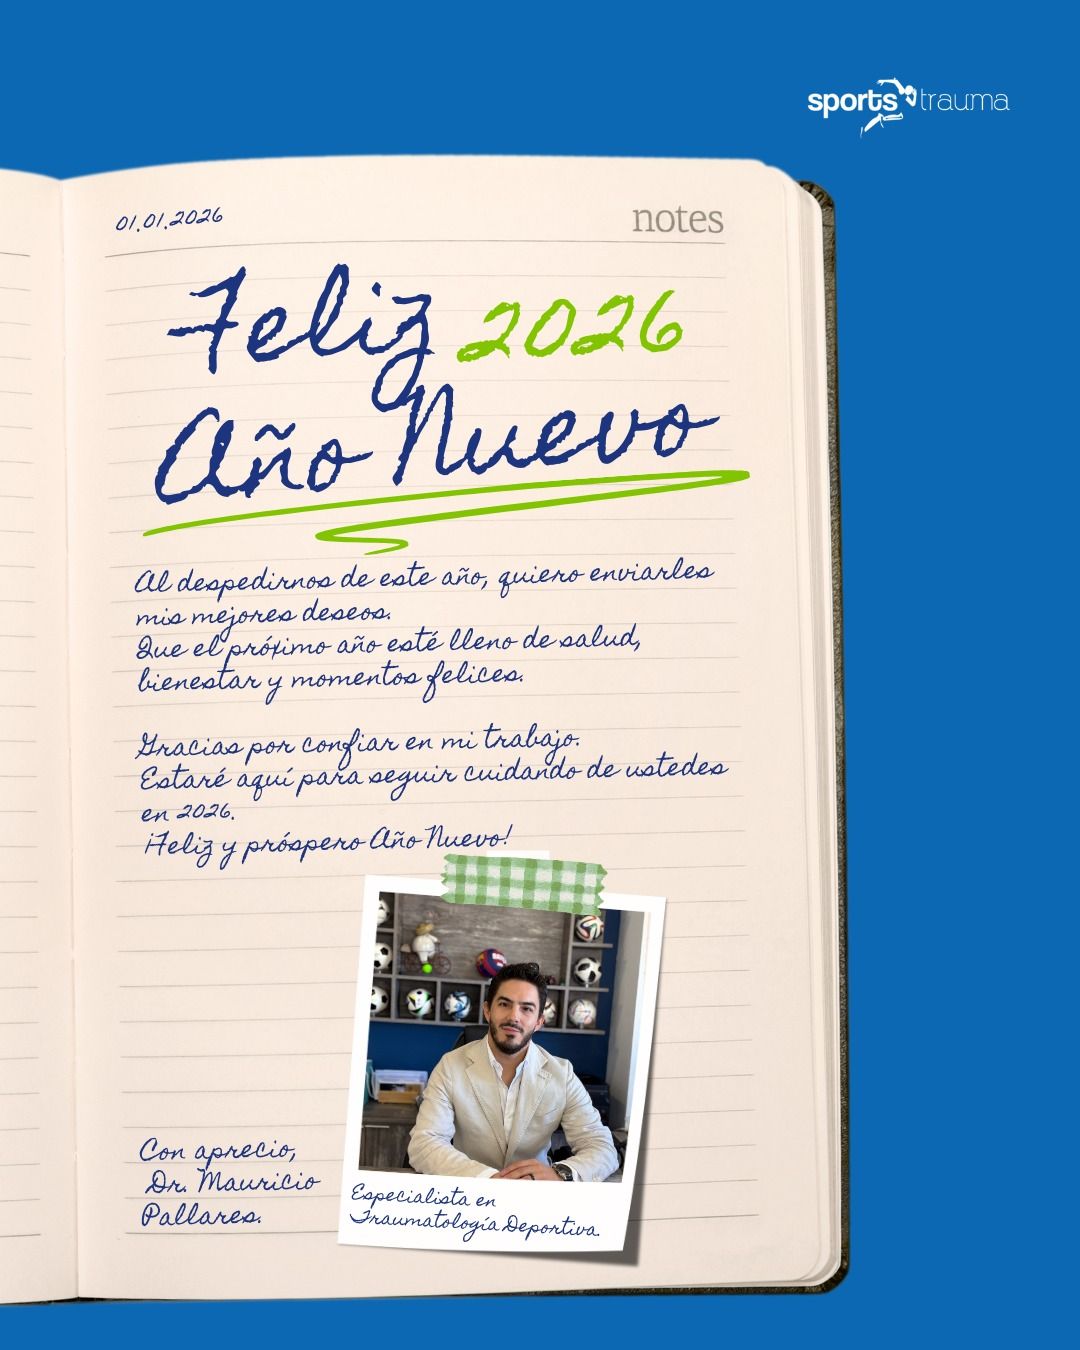 sports trauma
01.01.2026
notes
Feliz 2026
Año Nuevo
Al despedirnos de este año, quiero enviarles
mis mejores deseos.
Que el próximo año esté lleno de salud,
bienestar y momentos felices.
Gracias por confiar en mi trabajo.
Estaré aquí para seguir cuidando de ustedes
en 2026.
¡Feliz y próspero Año Nuevo!
Con aprecio,
Dr. Mauricio
Pallares.
Especialista en
Traumatología Deportiva.